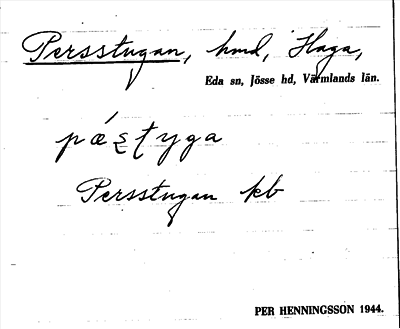 Persstugan, hmd, Haga,
Eda sn, Jösse hd, Värmlands län.
pǽʂʈyga
Persstugan kb
PER HENNINGSSON 1944.